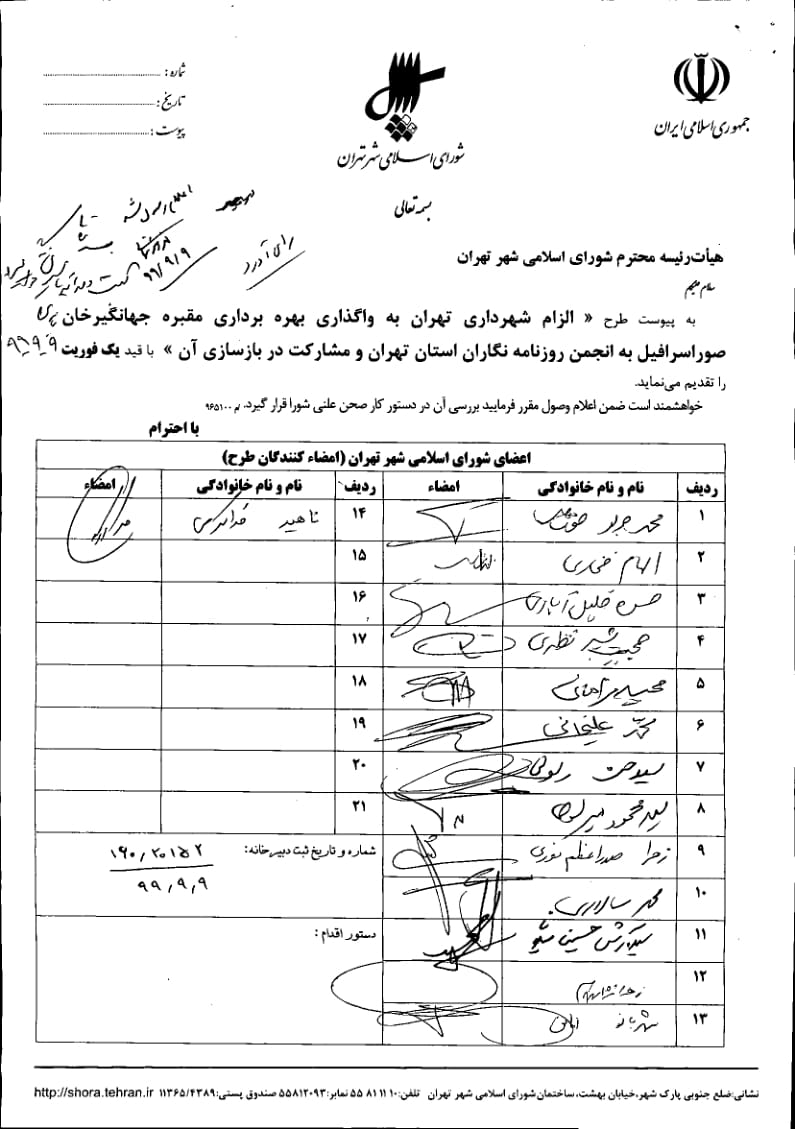 جمهوری اسلامی ایران
شورای اسلامی شهر تهران
شماره:
تاریخ:
پیوست:
بسمه تعالی
رای آورد
۹۹/۹/۹
هیأت‌رئیسه محترم شورای اسلامی شهر تهران
سلام علیکم
به پیوست طرح « الزام شهرداری تهران به واگذاری بهره برداری مقبره جهانگیرخان
صوراسرافیل به انجمن روزنامه نگاران استان تهران و مشارکت در بازسازی آن » با قید یک فوریت
را تقدیم می‌نماید.
خواهشمند است ضمن اعلام وصول مقرر فرمایید بررسی آن در دستور کار صحن علنی شورا قرار گیرد. /م ۹۶۵۱۰۰
با احترام
اعضای شورای اسلامی شهر تهران (امضاء کنندگان طرح)
ردیف نام و نام خانوادگی امضاء ردیف نام و نام خانوادگی امضاء
۱ محمد جواد ۱۴ ناهید خداکرمی
۲ الهام فخاری ۱۵
۳ حسن خلیل آبادی ۱۶
۴ نظری ۱۷
۵ ۱۸
۶ محمد علیخانی ۱۹
۷ سید حسن رسولی ۲۰
۸ سید محمود میرلوحی ۲۱
۹ زهرا صدراعظم نوری شماره و تاریخ ثبت دبیرخانه: ۱۶۰/۲۰۱۵۲
۹۹/۹/۹
۱۰ محمد سالاری
۱۱ دستور اقدام:
۱۲
۱۳ شهربانو امانی
نشانی:ضلع جنوبی پارک شهر،خیابان بهشت، ساختمان شورای اسلامی شهر تهران تلفن:۱۰ ۱۱ ۸۱ ۵۵ نمابر:۵۵۸۱۲۰۹۳ صندوق پستی:۱۱۳۶۵/۴۳۸۹ http://shora.tehran.ir